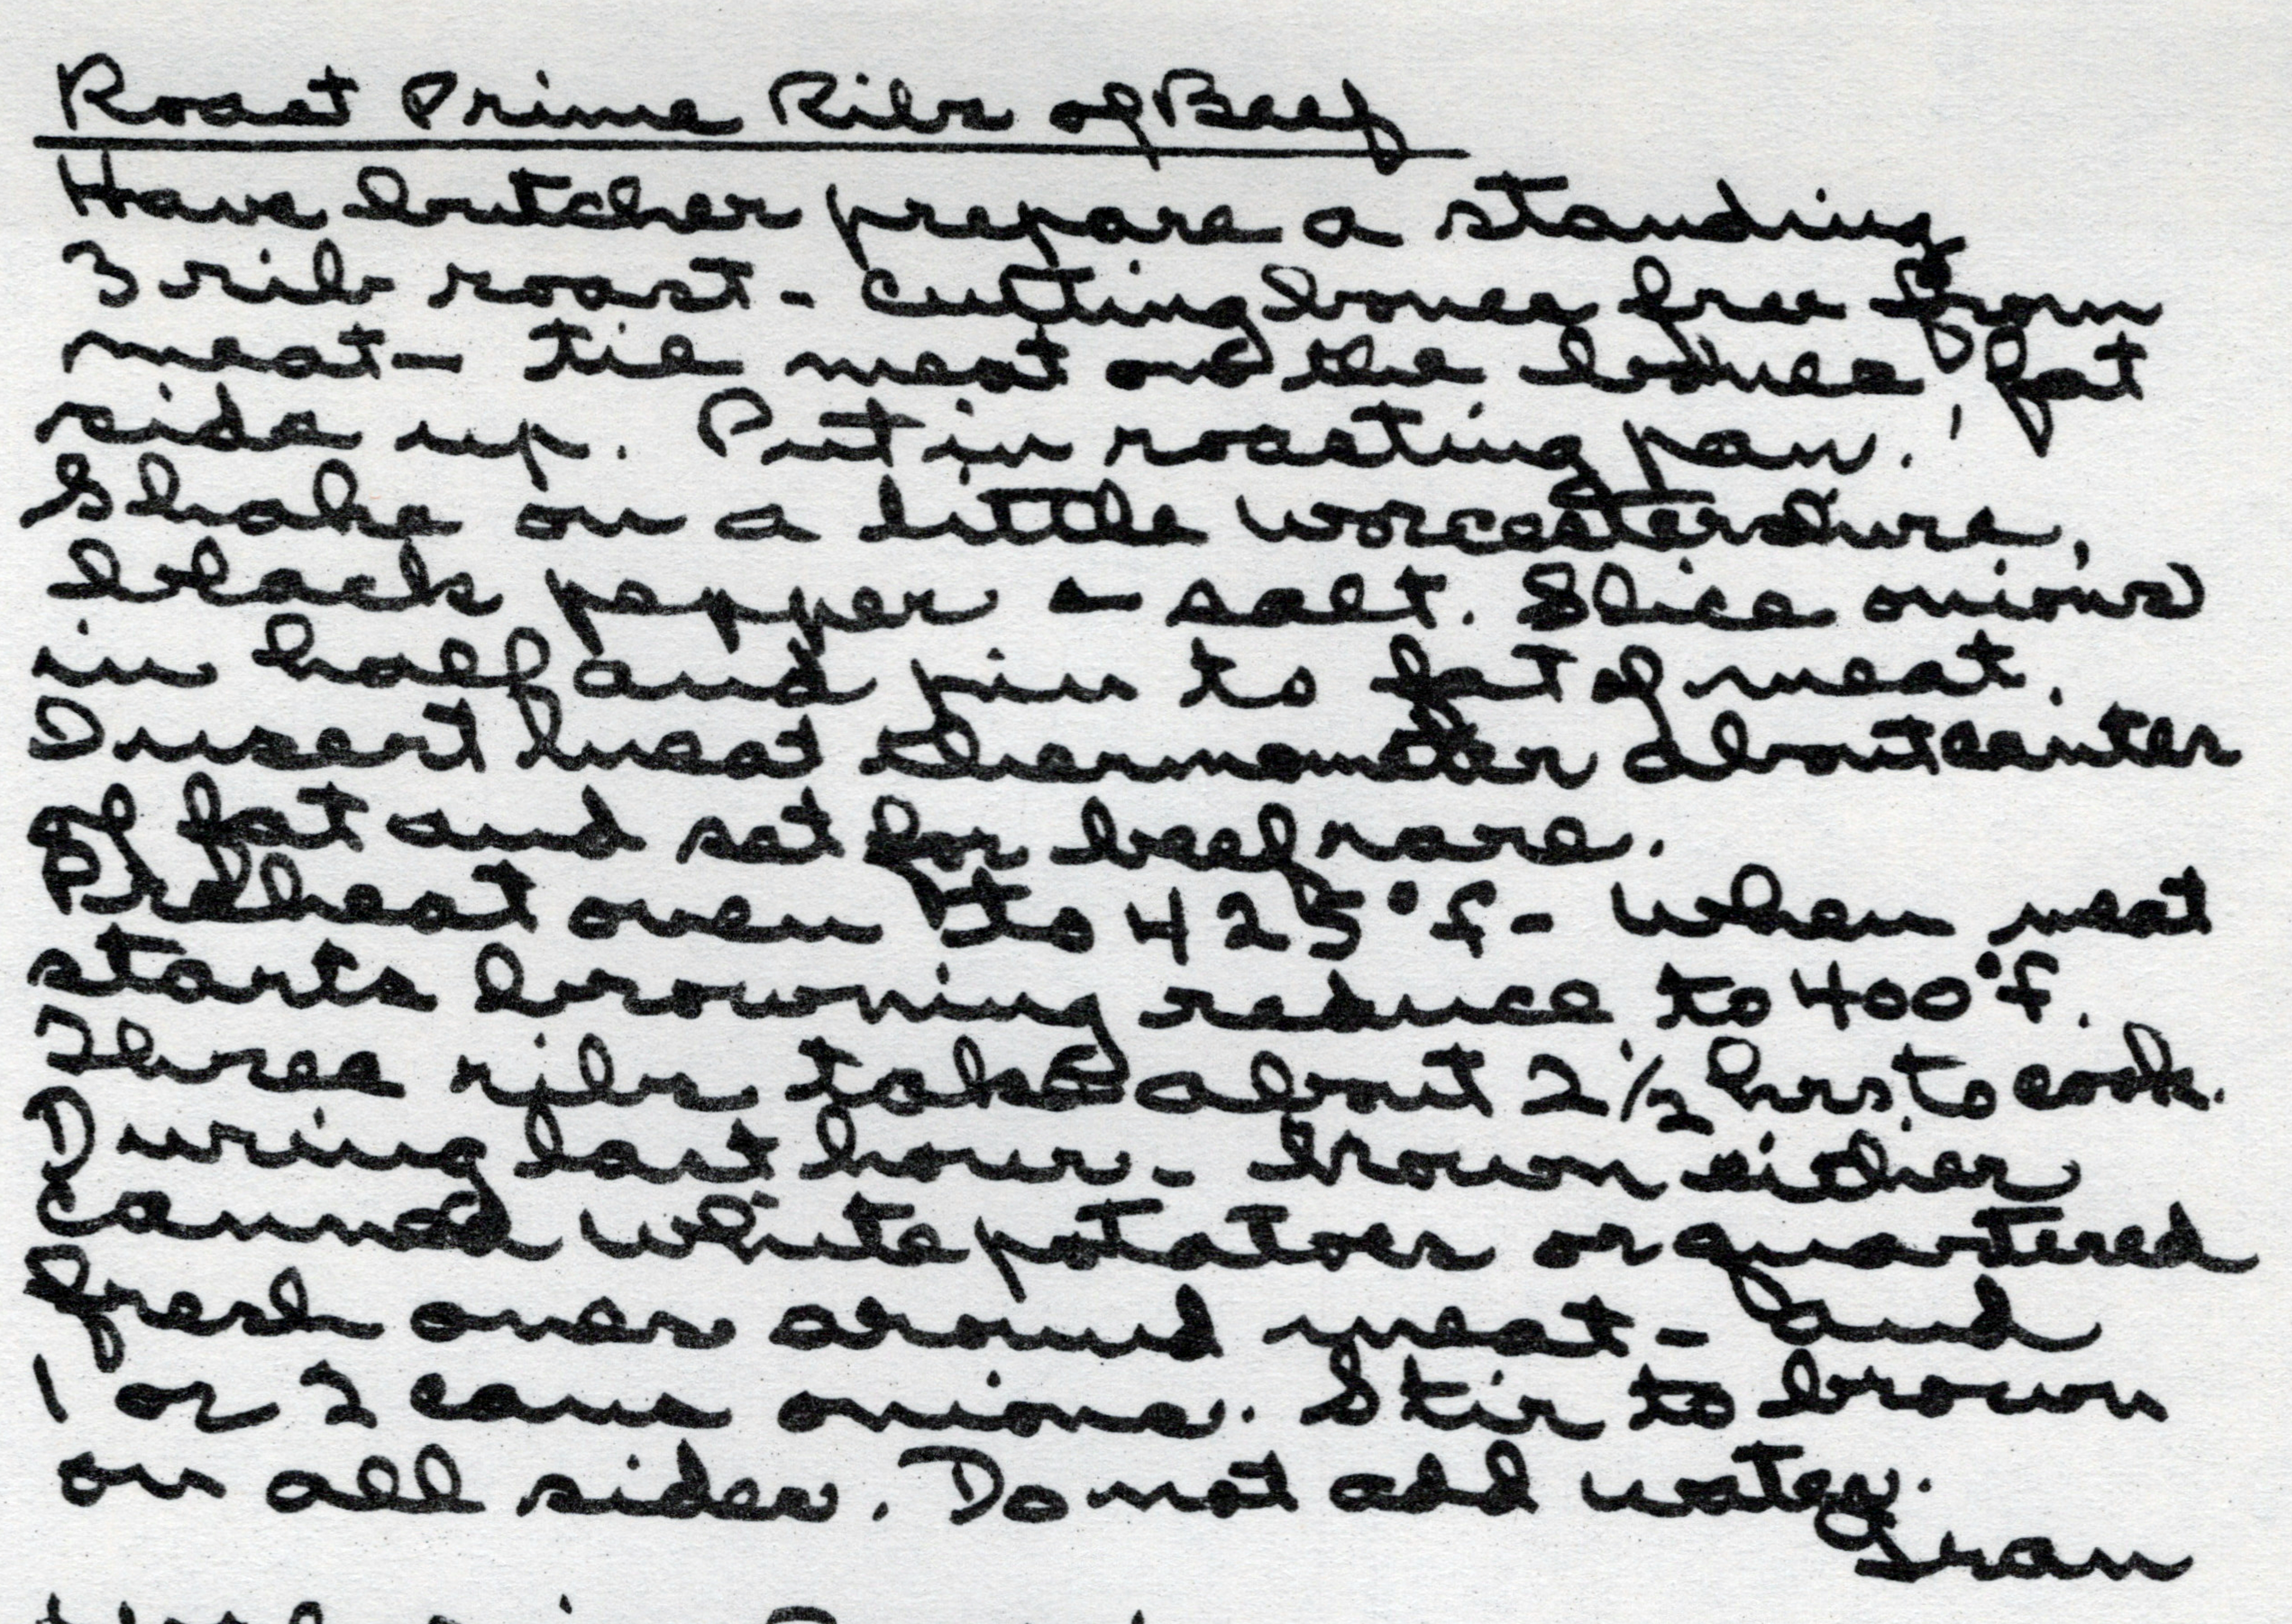 Roast Prime Ribs of Beef
Have butcher prepare a standing
3 rib roast - cutting bones free from
meat - tie meat on the bones, fat
side up. Put in roasting pan.
Shake on a little worcestershire,
black pepper & salt. Slice onions
in half and pin to fat of meat.
Insert meat thermometer about center
of fat and set for beef rare.
Preheat oven to 425°f - when meat
starts browning reduce to 400°f.
Three ribs take about 2 1/2 hrs. to cook.
During last hour - brown either
canned white potatoes or quartered
fresh ones around meat - and
1 or 2 cans onions. Stir to brown
on all sides. Do not add water.
Fran